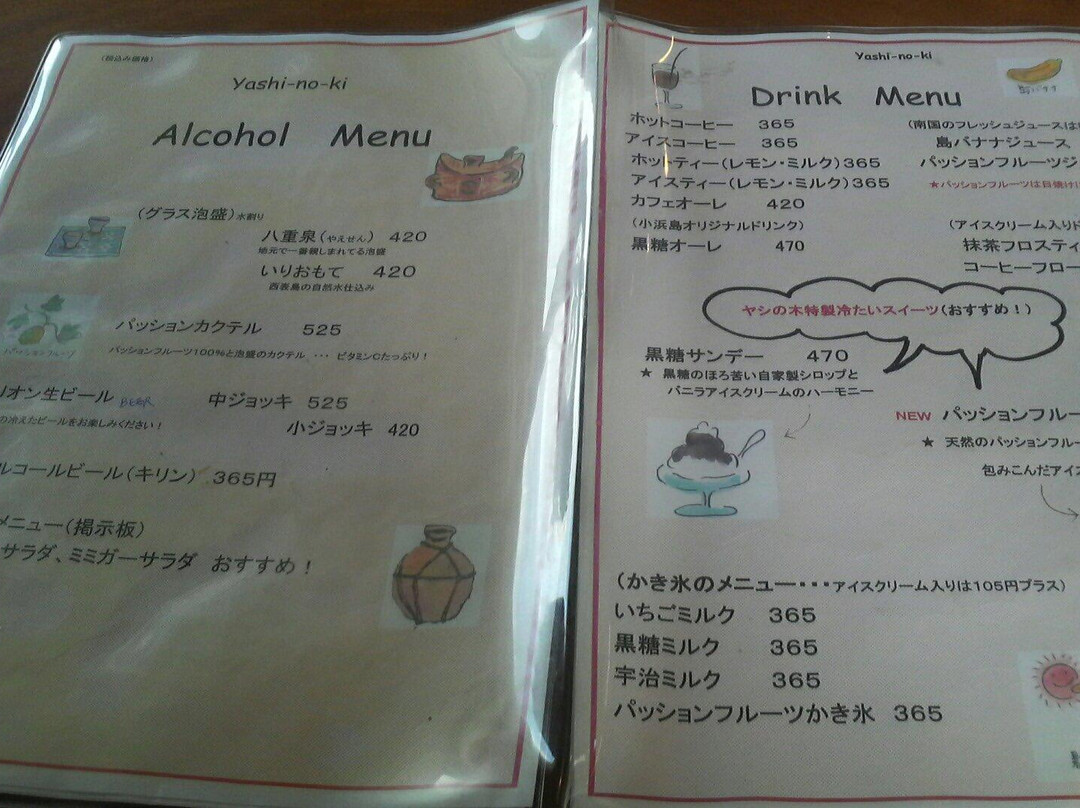 (税込み価格)
Yashi-no-ki
Alcohol Menu
(グラス泡盛)水割り
八重泉(やえせん) 420
地元で一番親しまれてる泡盛
いりおもて 420
西表島の自然水仕込み
パッションフルーツ
パッションカクテル 525
パッションフルーツ100%と泡盛のカクテル ・・・ ビタミンCたっぷり!
リオン生ビール BEER 中ジョッキ 525
の冷えたビールをお楽しみください! 小ジョッキ 420
ルコールビール(キリン) 365円
メニュー(掲示板)
サラダ、ミミガーサラダ おすすめ!
Yashi-no-ki
Drink Menu
島バナナ
ホットコーヒー 365
アイスコーヒー 365
ホットティー(レモン・ミルク)365
アイスティー(レモン・ミルク)365
カフェオーレ 420
(小浜島オリジナルドリンク)
黒糖オーレ 470
(南国のフレッシュジュースは
島バナナジュース
パッションフルーツジ
★パッションフルーツは日焼けに
(アイスクリーム入り
抹茶フロスティ
コーヒーフロー
ヤシの木特製冷たいスイーツ(おすすめ!)
黒糖サンデー 470
★ 黒糖のほろ苦い自家製シロップと
バニラアイスクリームのハーモニー
NEW パッションフルー
★ 天然のパッションフルー
包みこんだアイス
(かき氷のメニュー・・・アイスクリーム入りは105円プラス)
いちごミルク 365
黒糖ミルク 365
宇治ミルク 365
パッションフルーツかき氷 365